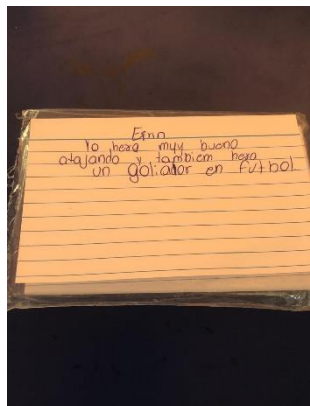 Esnn
Yo hera muy bueno
atajando y tambiem hera
un goliador en futbol